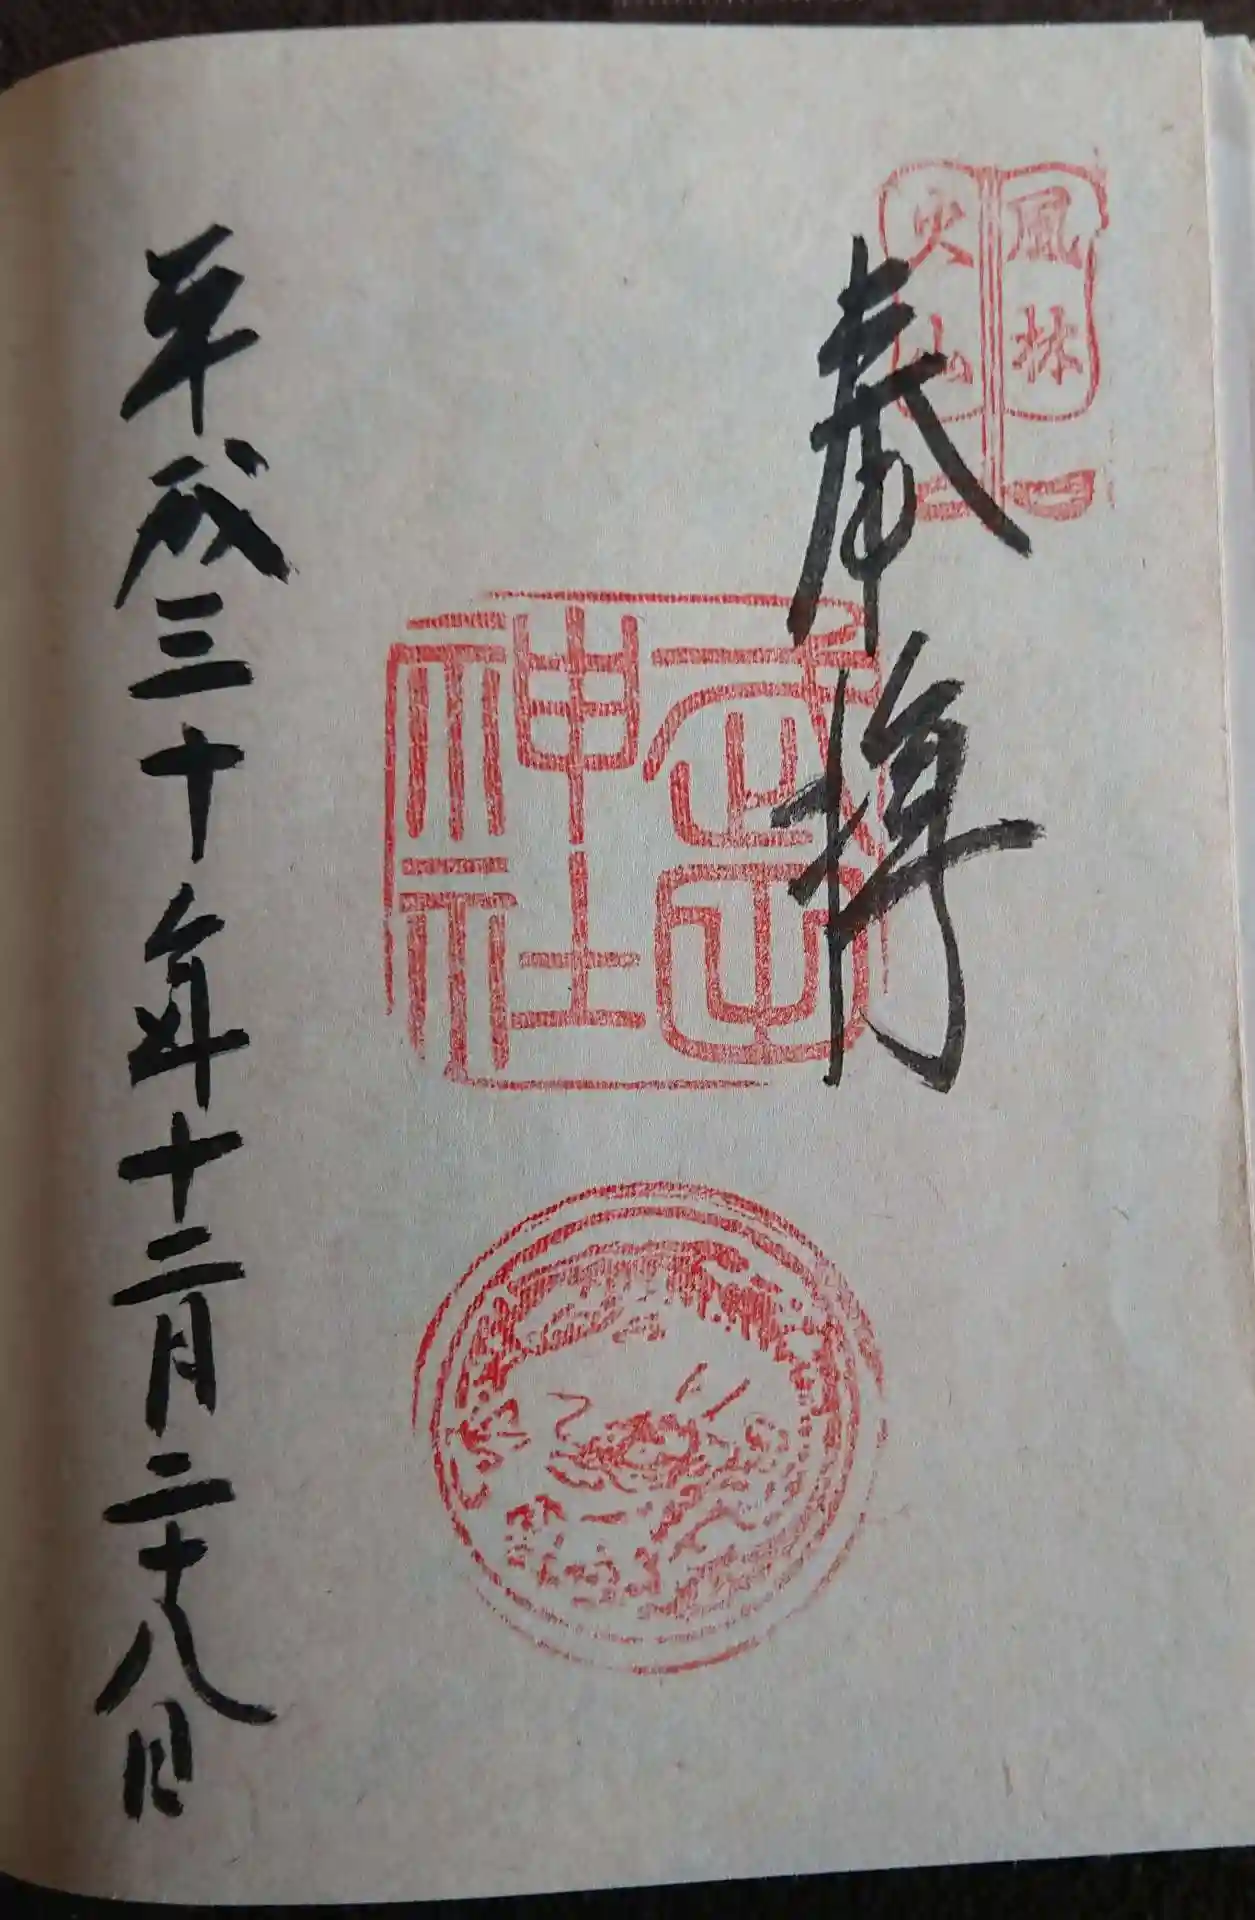 風林
火山
奉拝
武田
神社
平成三十年十二月二十八日